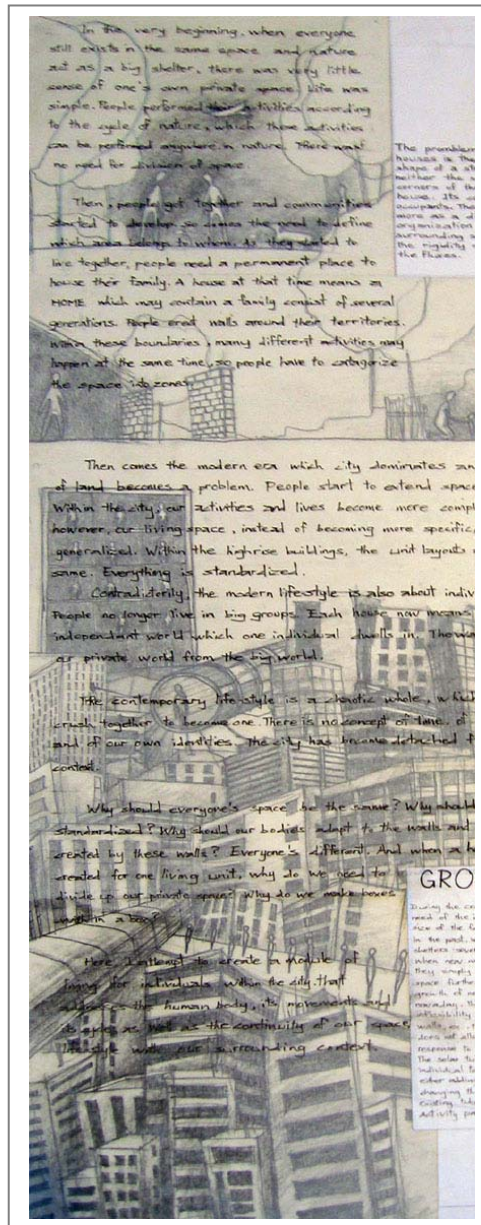 In the very beginning, when everyone
still exists in the same space and nature
act as a big shelter, there was very little
sense of one's own private space. Life was
simple. People performed their activities according
to the cycle of nature, which these activities
can be performed anywhere in nature. There want
no need for division of space.
Then, people get together and communities
started to develop, so comes the need to define
which area belongs to whom. As they started to
live together, people need a permanent place to
house their family. A house at that time means a
HOME which may contain a family consist of several
generations. People erect walls around their territories.
Within these boundaries, many different activities may
happen at the same time, so people have to catagorize
the space into zones.
Then comes the modern era which city dominates an
of land becomes a problem. People start to extend space
Within the city, our activities and lives become more compl
however, our living space, instead of becoming more specific,
generalized. Within the highrise buildings, the unit layouts
same. Everything is standardized.
Contradictorily, the modern lifestyle is also about indiv
People no longer live in big groups. Each house now means
independant world which one individual dwells in.
our private world from the big world.
The contemporary lifestyle is a chaotic whole, which
crush together to become one. There is no concept of time, of
and of our own identities. The city has become detached f
context.
Why should everyone's space be the same? Why should
standardized? Why should our bodies adapt to the walls and
created by these walls? Everyone's different. And when a h
created for one living unit, why do we need to
divide up our private space? Why do we make boxes
within a box?
Here, I attempt to create a module of
living for individuals within the city that
address the human body, its movements and
its cycle, as well as the continuity of our space,
lifestyle with our surrounding context.
The promblem
houses is the
shape of a st
neither the
corners of th
house. Its co
occupants. The
more as a d
organization
surrounding s
the rigidity
the Fluxes.
GRO
During the co
need of the i
size of the fa
In the past, w
shelters
when new
they simply
space furthe
growth of
nowaday, th
inflexibility
walls, or
does not all
response to
The solar tu
individual to
either addin
changing th
existing tub
Activity pa